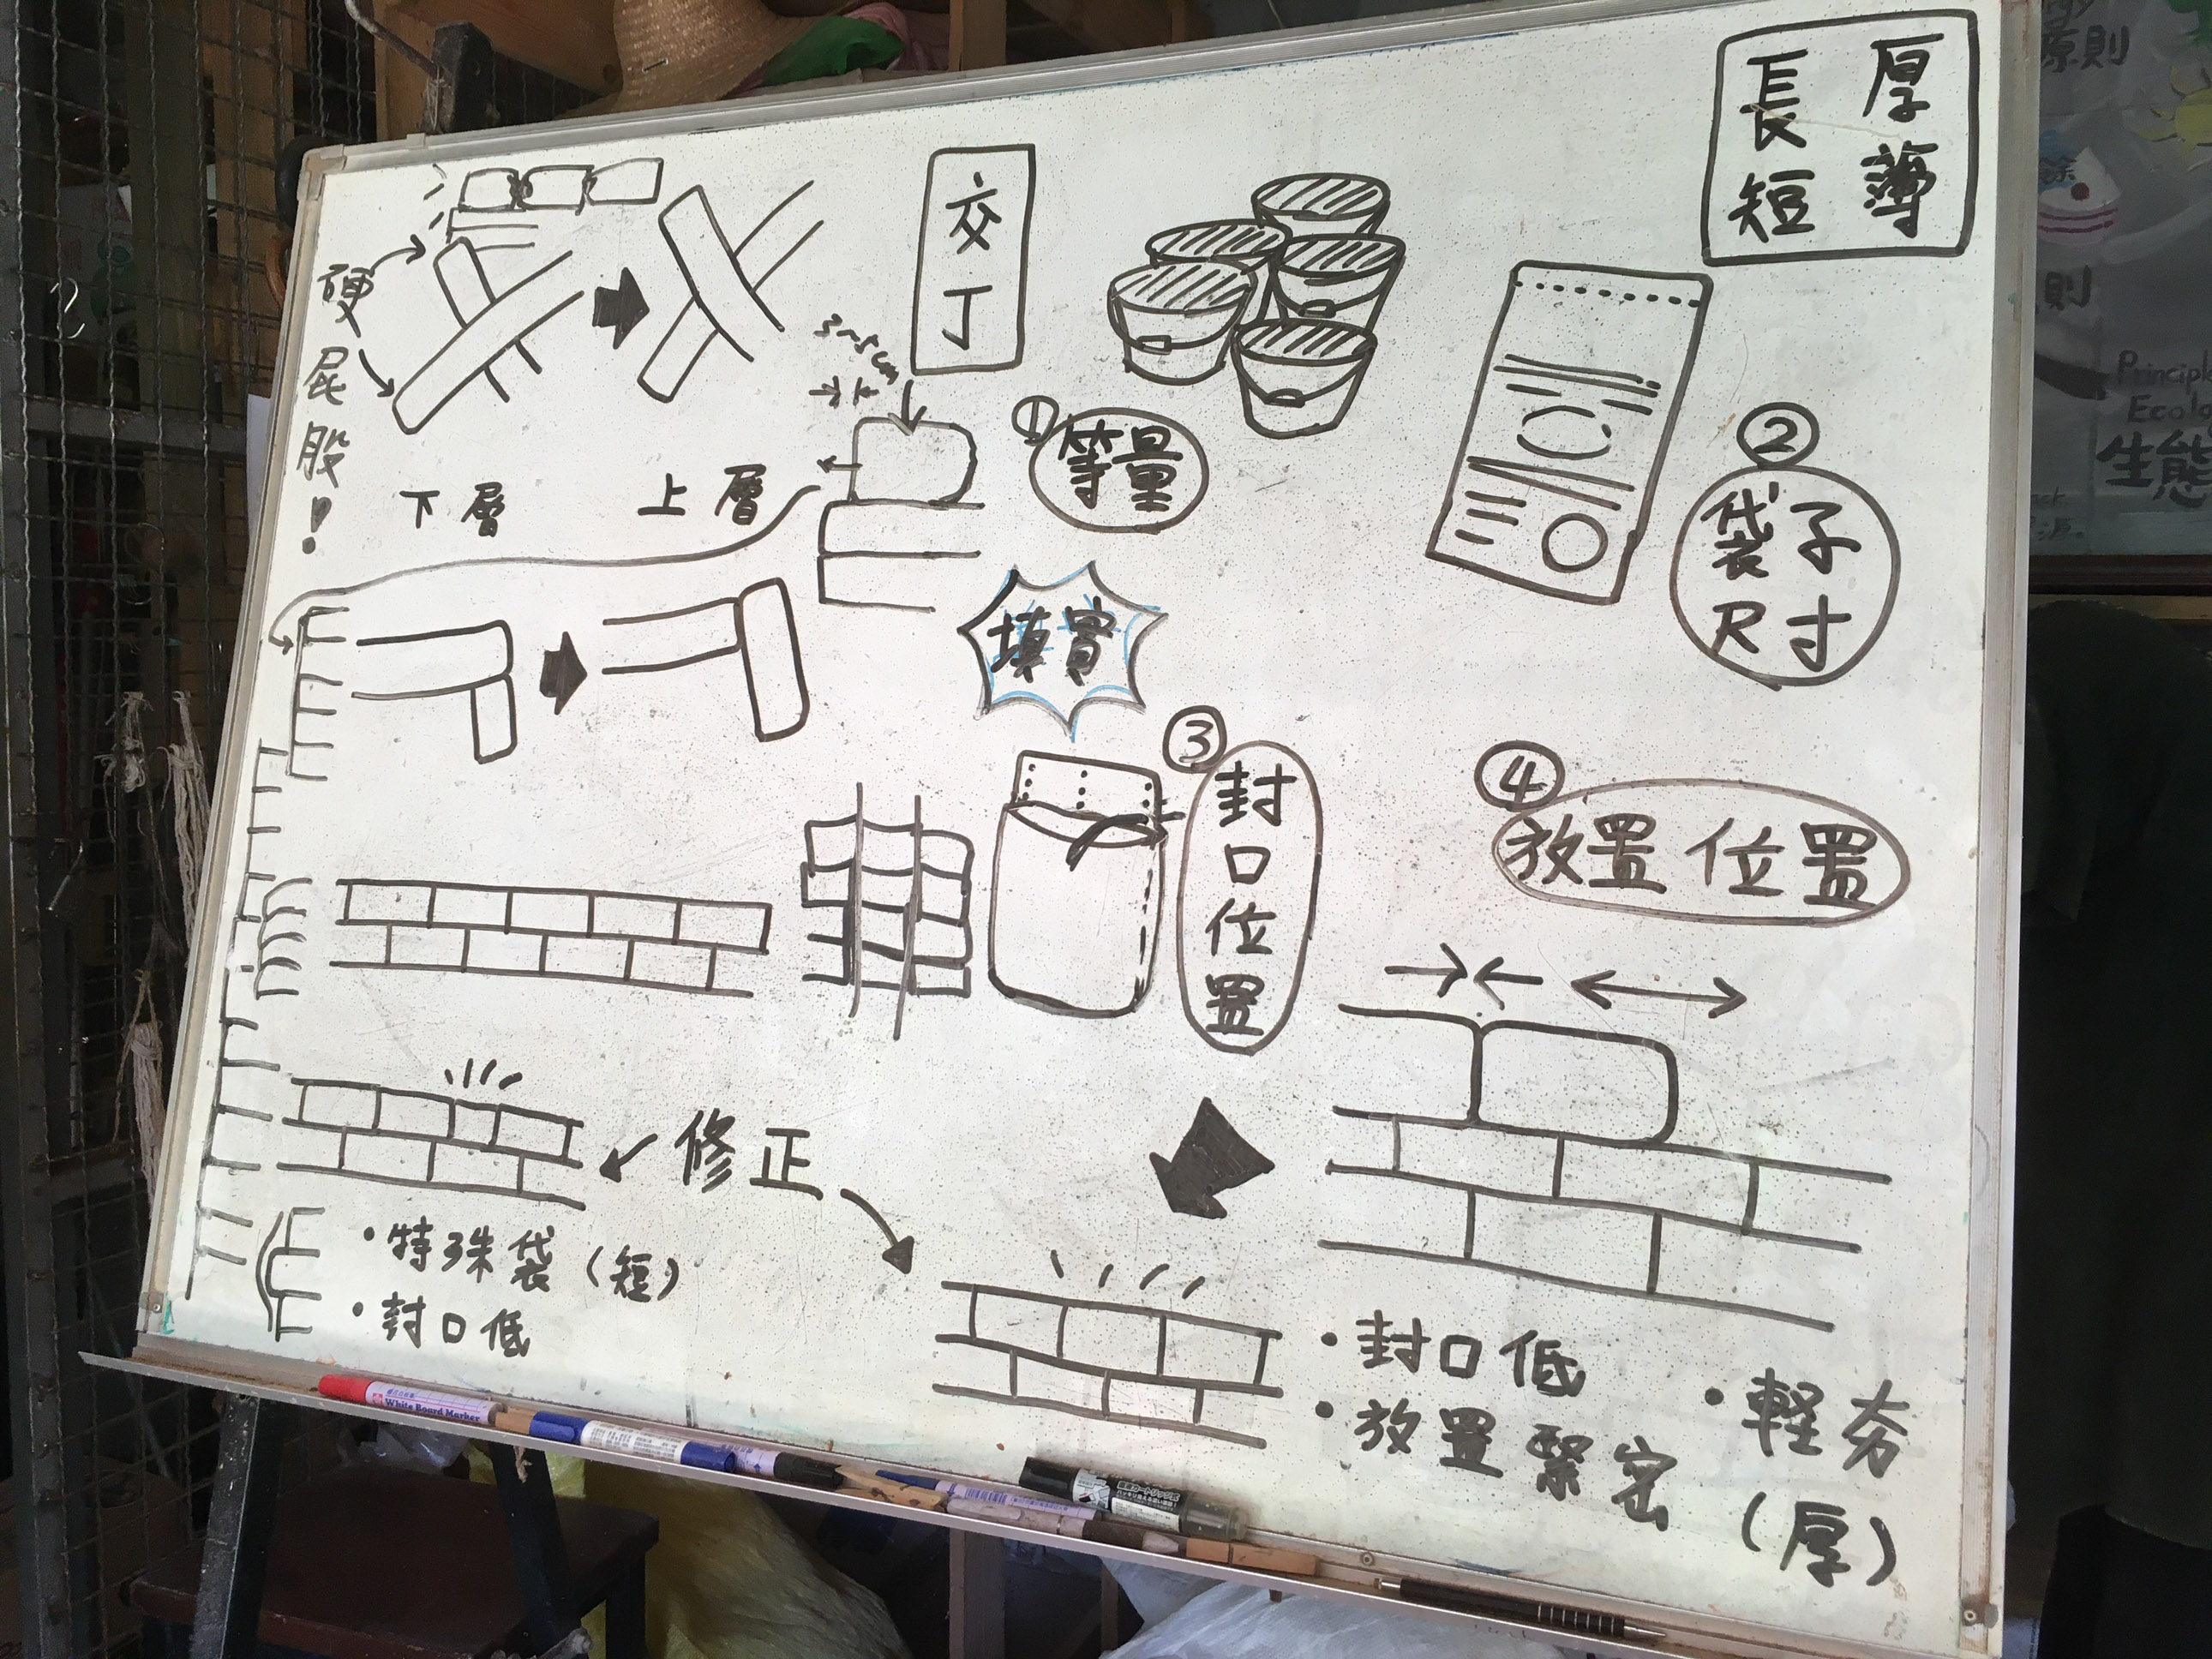 長 厚
短 薄
交丁
硬屁股!
3~5cm
下層
上層
① 等量
② 袋子
尺寸
填實
③ 封口位置
④ 放置位置
修正
・特殊袋(短)
・封口低
・封口低
・放置緊密
・軽夯
(厚)
White Board Marker
原則
則
Ecolo
生態